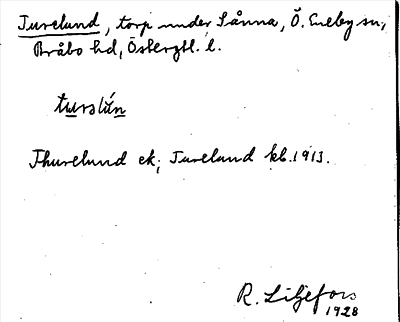 Turelund, torp under Sånna, Ö. Eneby sn,
Bråbo hd, Östergtl. l.
turəlún
Thurelund ek; Tureland kb. 1913.
R. Liljefors
1928